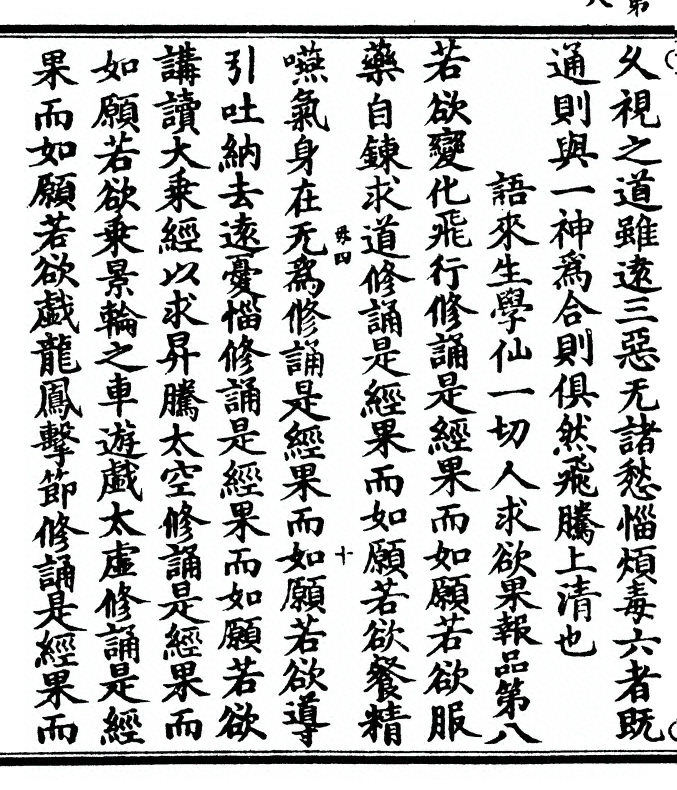 久視之道雖遠三惡无諸愁惱煩毒六者既
通則與一神為合則俱然飛騰上清也
語來生學仙一切人求欲果報品第八
若欲變化飛行修誦是經果而如願若欲服
藥自鍊求道修誦是經果而如願若欲餐精
嚥氣身在无為修誦是經果而如願若欲導
引吐納去遠憂惱修誦是經果而如願若欲
講讀大乘經以求昇騰太空修誦是經果而
如願若欲乘景輪之車遊戲太虛修誦是經
果而如願若欲戲龍鳳擊節修誦是經果而
十